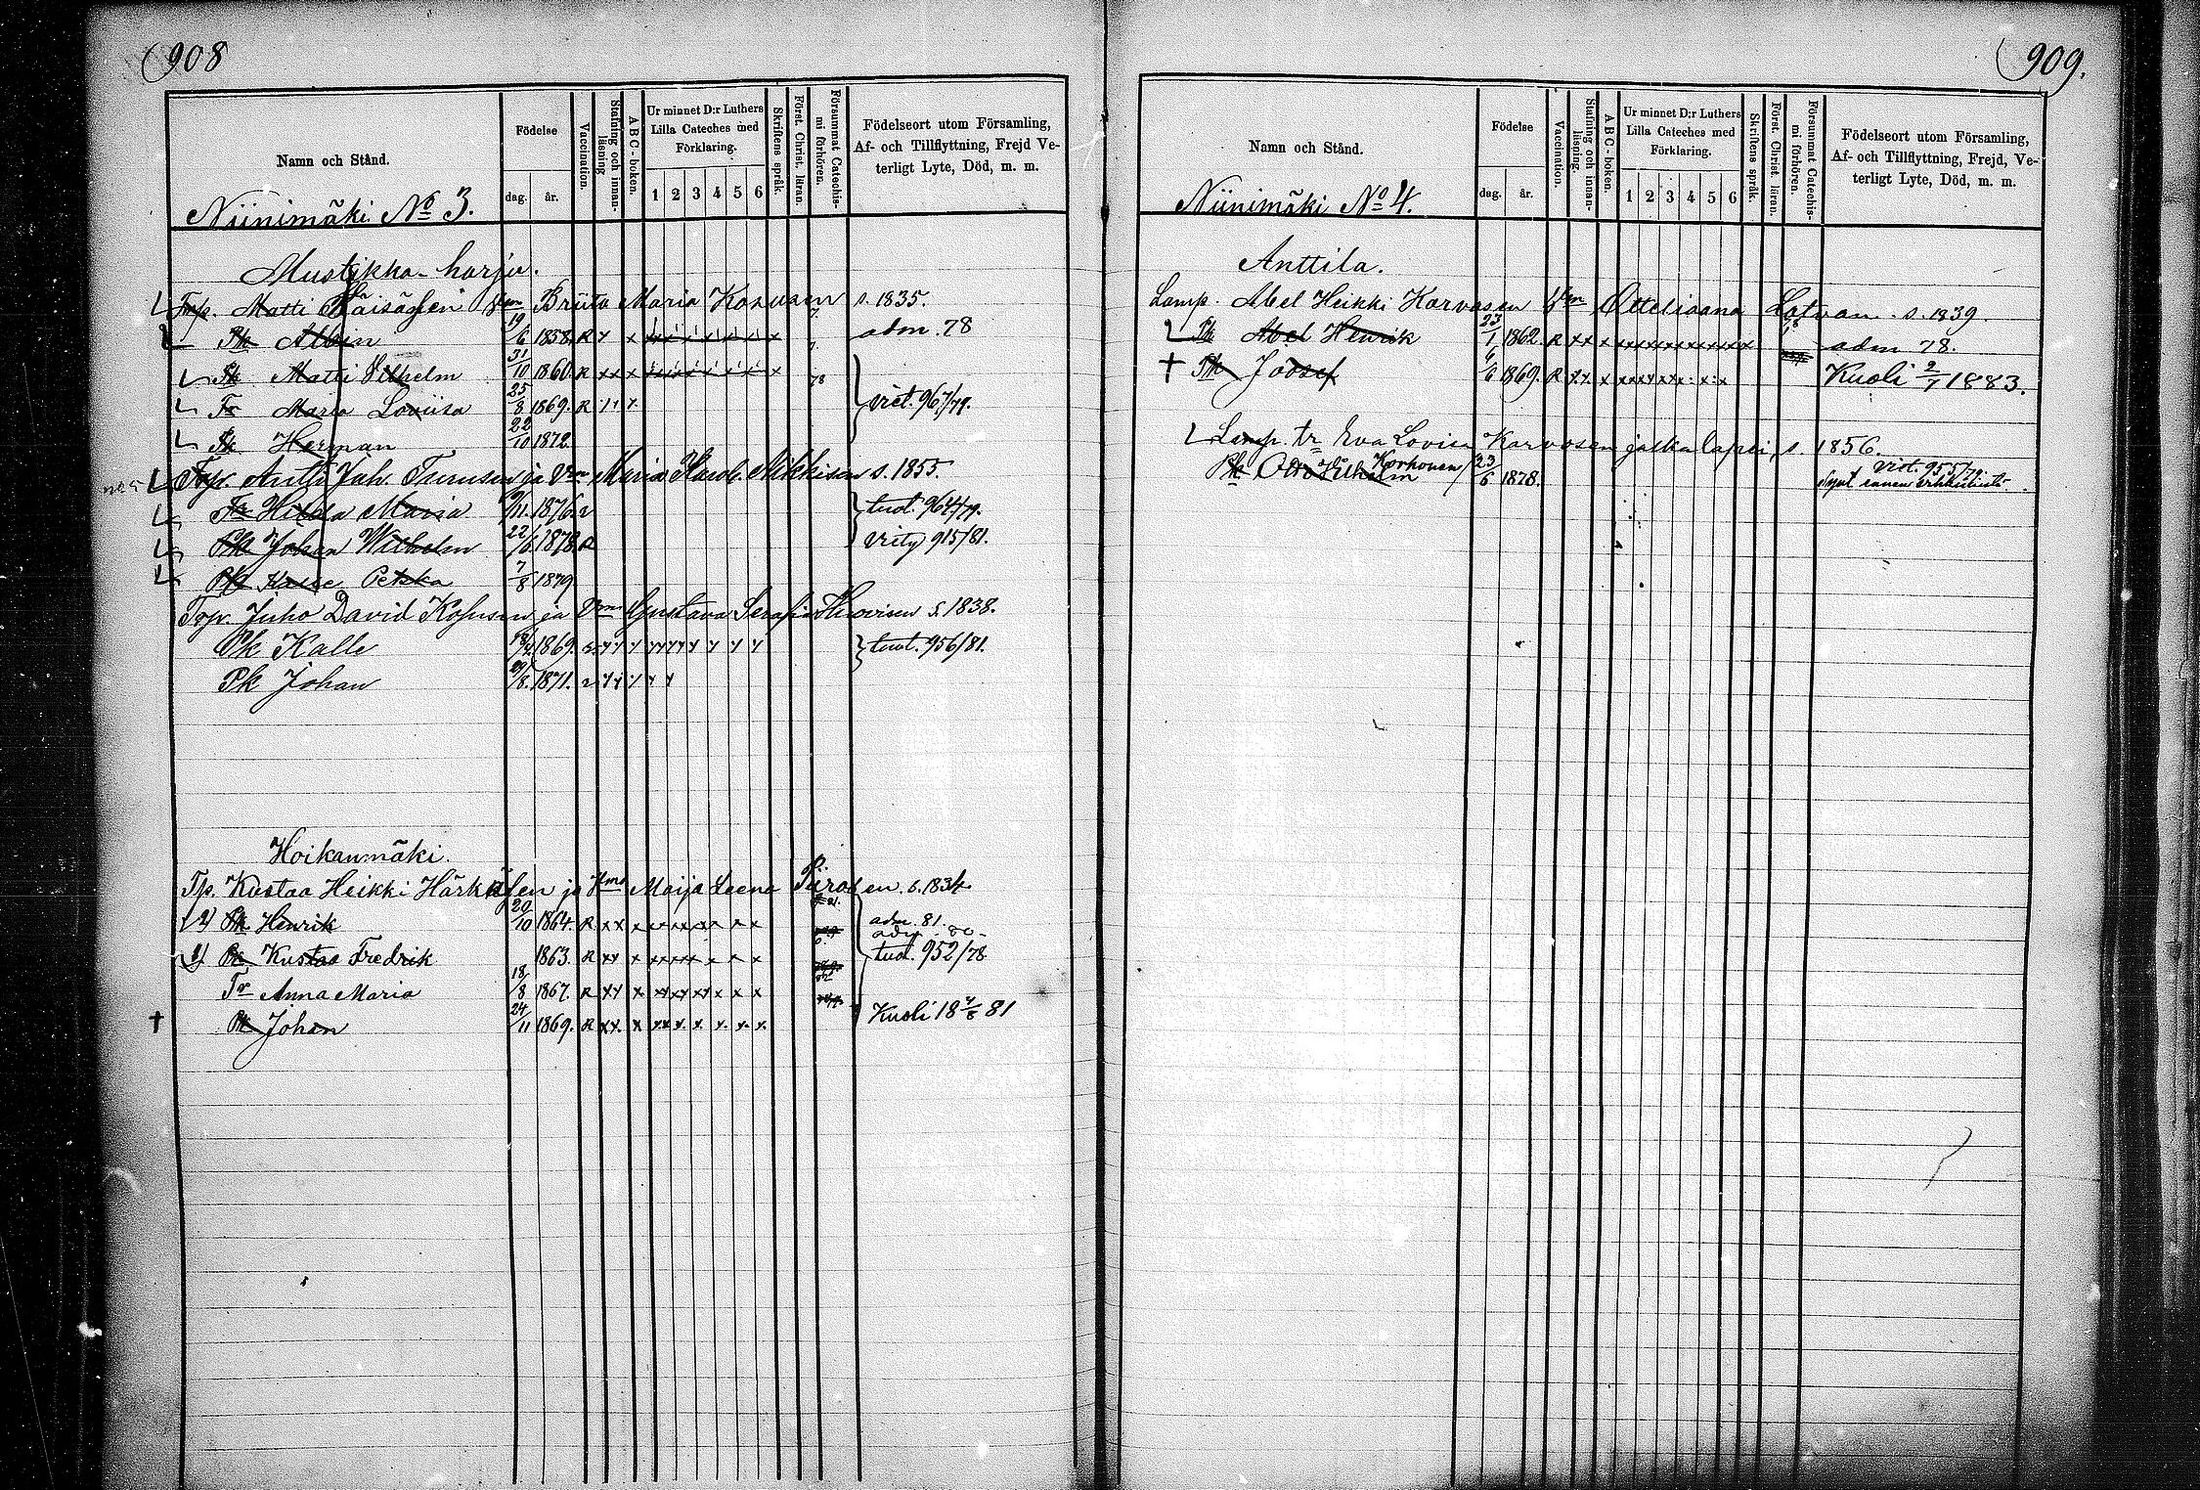 908
Namn och Stånd.
Födelse
dag.
år.
Vaccination.
Stafning och innan-läsning
A B C-boken.
Ur minnet D:r Luthers
Lilla Cateches med
Förklaring.
1 2 3 4 5 6
Skriftens språk.
Först. Christ. läran.
Försummat Catechis-mi förhören.
Födelseort utom Församling,
Af- och Tillflyttning, Frejd Ve-
terligt Lyte, Död, m. m.
Niinimäki No 3.
Mustikka-harju.
Matti Räisäsen Briita Maria s. 1835.
Pk Albin 19/6 1858. R adm. 78
Pk Matti Vilhelm 31/10 1860. R
Tr Maria Loviisa 25/8 1869. R viet. 967/79.
Pk Herman 22/10 1872
Top. Antti Juh. Turusen ja Vmo Maria Karol. Mikkisen s. 1855.
Tr Hilda Maria 1876. tuot. 964/79.
Pk Johan Wilhelm 22/6 1878 R viety 915/81.
Pk Kalle Pekka 7/8 1879
Top. Juho David Kohusen ja Vmo Gustava Serafia Huovisen s. 1838.
Pk Kalle 1869. tuot. 956/81.
Pk Johan 1871.
Hoikanmäki.
Tp. Kustaa Heikki Härkäsen ja Vmo Maija Leena Piirosen s. 1834
2) Pk Henrik 20/10 1864. R adm. 81.
1) Pk Kustaa Fredrik 1863. R tuot. 952/78
Tr Anna Maria 18/8 1867. R
† Pk Johan 24/11 1869. R Kuoli 18 4/8 81
909.
Namn och Stånd.
Födelse
dag.
år.
Vaccination.
Stafning och innan-läsning.
A B C-boken.
Ur minnet D:r Luthers
Lilla Cateches med
Förklaring.
1 2 3 4 5 6
Skriftens språk.
Först. Christ. läran.
Försummat Catechis-mi förhören.
Födelseort utom Församling,
Af- och Tillflyttning, Frejd, Ve-
terligt Lyte, Död, m. m.
Niinimäki No 4.
Anttila.
Lamp. Abel Heikki Karvosen Vmo Otteliaana s. 1839.
Pk Abel Henrik 23/1 1862. R adm 78.
† Pk Joosef 1869. R Kuoli 2/7 1883.
Lamp. tr Eva Lovisa Karvosen jalka lapsi, s. 1856.
Pk Otto Vilhelm Korhonen 23/6 1878. viet. 955/79.